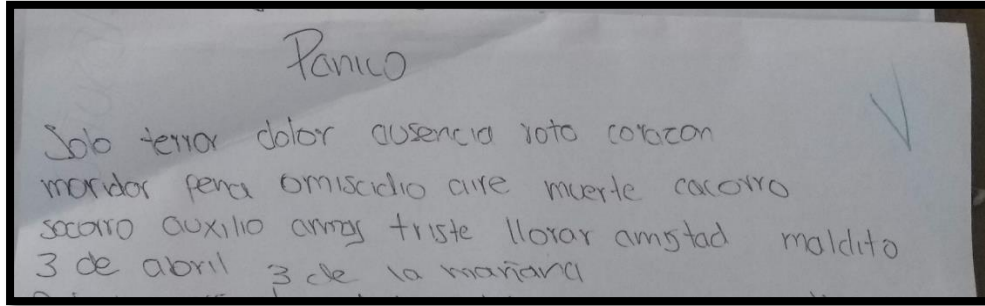 Panico
Solo terror dolor ausencia roto corazon
moridor pena omiscidio aire muerte cacorro
socorro auxilio amas triste llorar amistad maldito
3 de abril 3 de la mañana